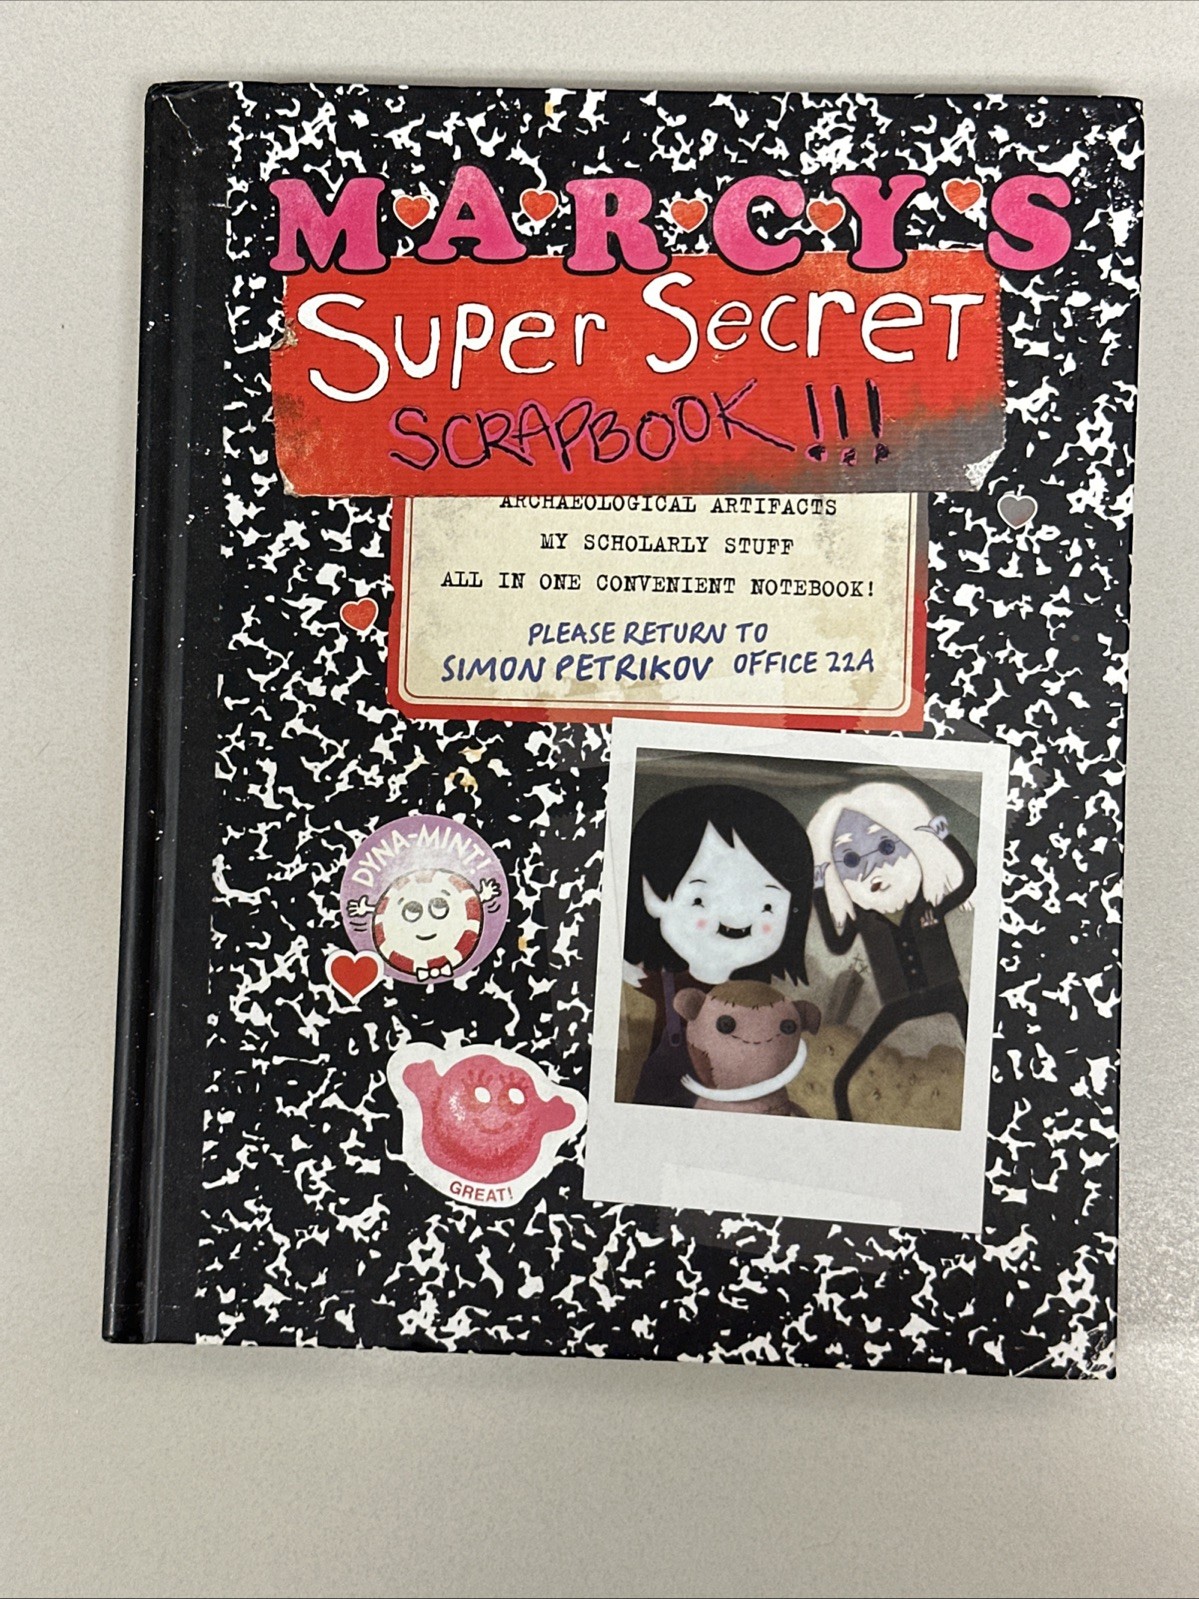 M·A·R·C·Y·S
Super Secret
SCRAPBOOK!!!
ARCHAEOLOGICAL ARTIFACTS
MY SCHOLARLY STUFF
ALL IN ONE CONVENIENT NOTEBOOK!
PLEASE RETURN TO
SIMON PETRIKOV OFFICE 22A
DYNA-MINT!
GREAT!